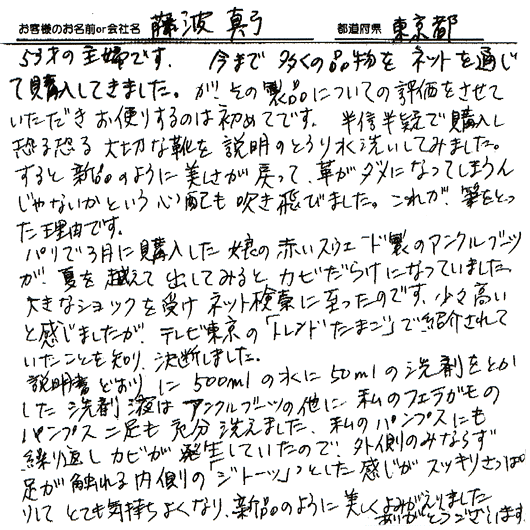 お客様のお名前or会社名 藤波 真弓 都道府県 東京都
53才の主婦です。 今まで多くの品物をネットを通じ
て購入してきました。が、その製品についての評価をさせて
いただきお便りするのは初めてです。半信半疑で購入し
恐る恐る大切な靴を説明のとうり水洗いしてみました。
すると新品のように美しさが戻って、革がダメになってしまうん
じゃないかという心配も吹き飛びました。これが、筆をとっ
た理由です。
パリで3月に購入した娘の赤いスウェード製のアンクルブーツ
が、夏を越えて出してみるとカビだらけになっていました。
大きなショックを受けネット検索に至ったのです。少々高い
と感じましたが、テレビ東京の「トレンドたまご」で紹介されて
いたことを知り、決断しました。
説明書どおりに500mlの水に50mlの洗剤をとか
した洗剤液はアンクルブーツの他に私のフェラガモの
パンプス二足も充分洗えました。私のパンプスにも
繰り返しカビが発生していたので、外側のみならず
足が触れる内側の「ジトーッ」とした感じがスッキリさっぱ
りしてとても気持ちよくなり、新品のように美しくよみがえりました
ありがとうございます。